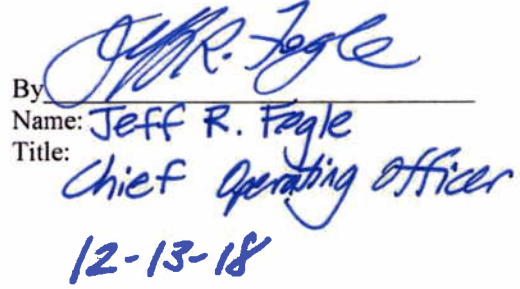 By Jeff R. Fogle
Name: Jeff R. Fogle
Title:
Chief Operating Officer
12-13-18